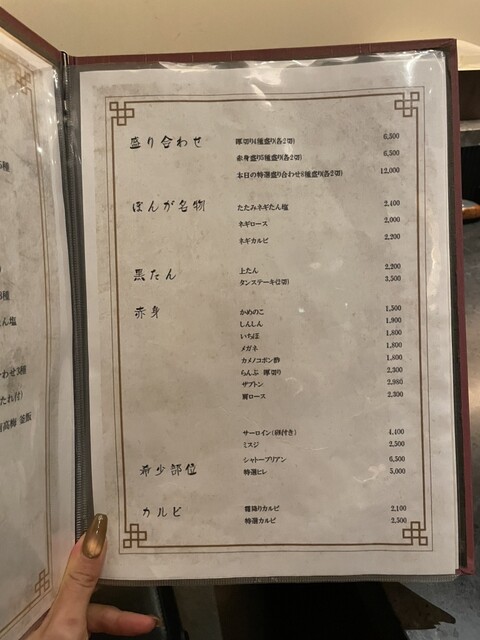 5種
5種
たん塩
わせ3種
たれ付)
南高梅 釜飯
盛り合わせ
厚切り4種盛り(各2切) 6,500
赤身盛り5種盛り(各2切) 6,500
本日の特選盛り合わせ8種盛り(各2切) 12,000
ぽんが名物
たたみネギたん塩 2,400
ネギロース 2,000
ネギカルビ 2,200
黒たん
上たん 2,200
タンステーキ(2切) 3,500
赤身
かめのこ 1,500
しんしん 1,900
いちぼ 1,800
メガネ 1,800
カメノコポン酢 1,800
らんぷ 厚切り 2,300
ザブトン 2,980
肩ロース 2,300
サーロイン(卵付き) 4,400
ミスジ 2,500
シャトーブリアン 6,500
希少部位
特選ヒレ 5,000
カルビ
霜降りカルビ 2,100
特選カルビ 2,500